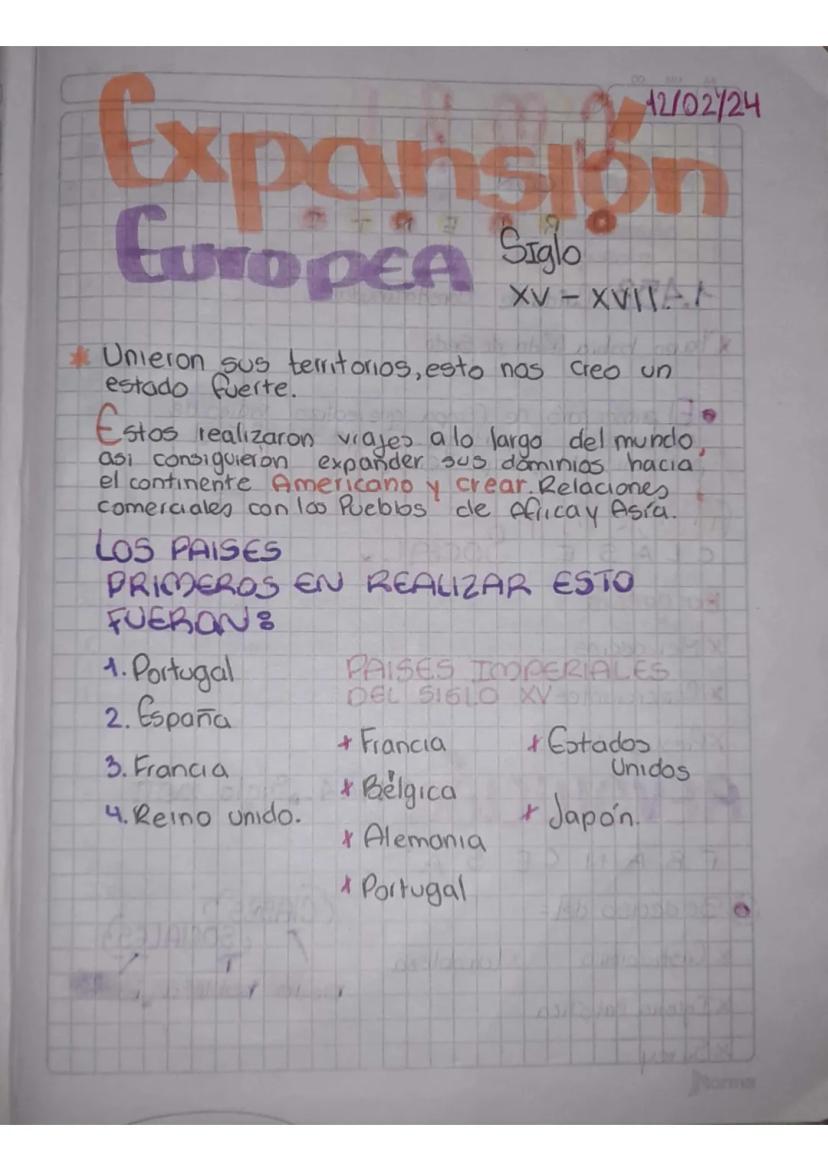 12/02/24
Expansión
Europea
Siglo
XV - XVII
* Unieron sus territorios, esto nos creo un
estado fuerte.
Estos realizaron viajes a lo largo del mundo,
asi consiguieron expander sus dominios hacia
el continente Americano y crear. Relaciones
comerciales con los Pueblos de Africa y Asía.
LOS PAISES
PRIMEROS EN REALIZAR ESTO
FUERON:
1. Portugal
2. España
3. Francia
4. Reino unido.
PAISES IMPERIALES
DEL SIGLO XV
+ Francia
x Bélgica
x Alemania
x Portugal
x Estados
Unidos
x Japón.
Norma